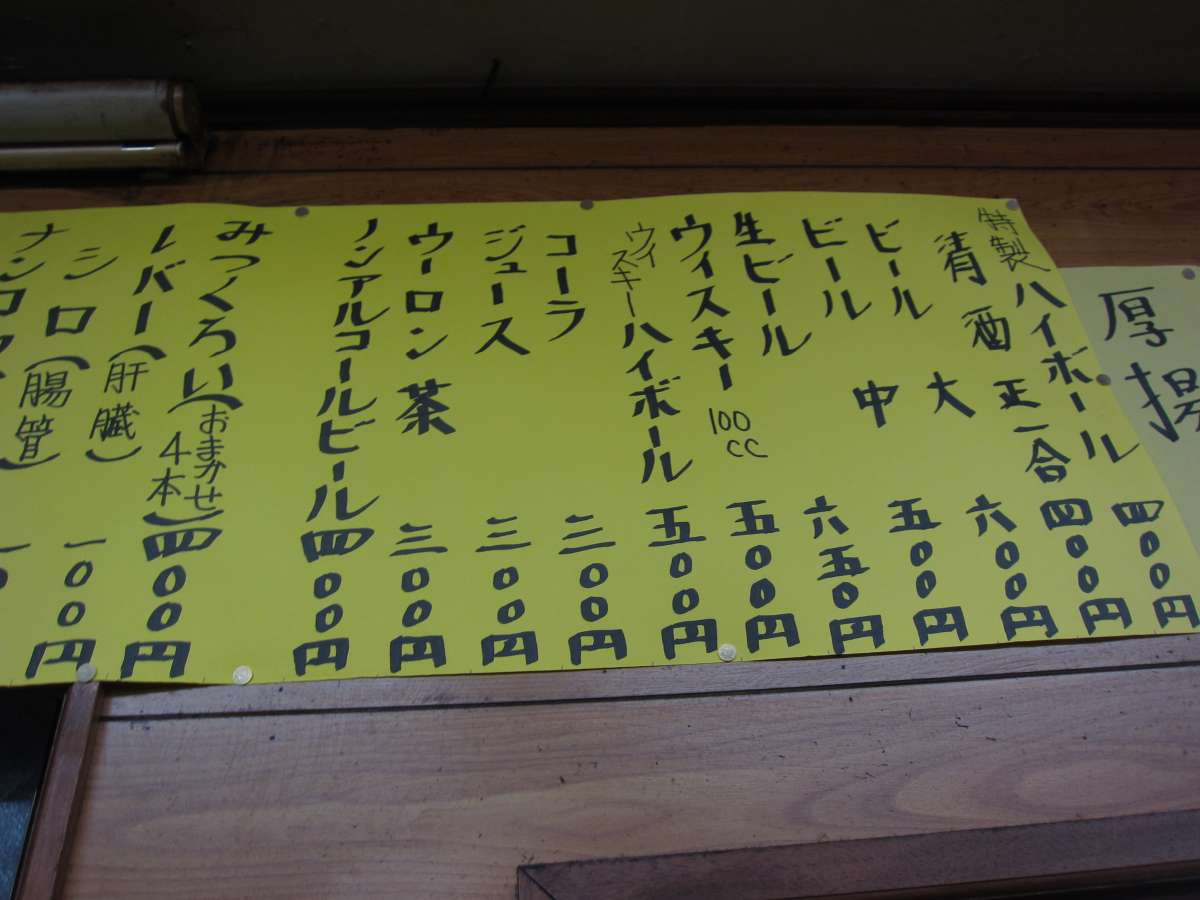 厚揚
特製ハイボール 四〇〇円
清酒 正一合 四〇〇円
ビール 大 六〇〇円
ビール 中 五〇〇円
生ビール 六五〇円
ウィスキー 100cc 五〇〇円
ウィスキーハイボール 五〇〇円
コーラ 三〇〇円
ジュース 三〇〇円
ウーロン茶 三〇〇円
ノンアルコールビール 四〇〇円
みつくろい(おまかせ4本) 四〇〇円
レバー(肝臓) 一〇〇円
シロ(腸管) 一〇
ナンコ